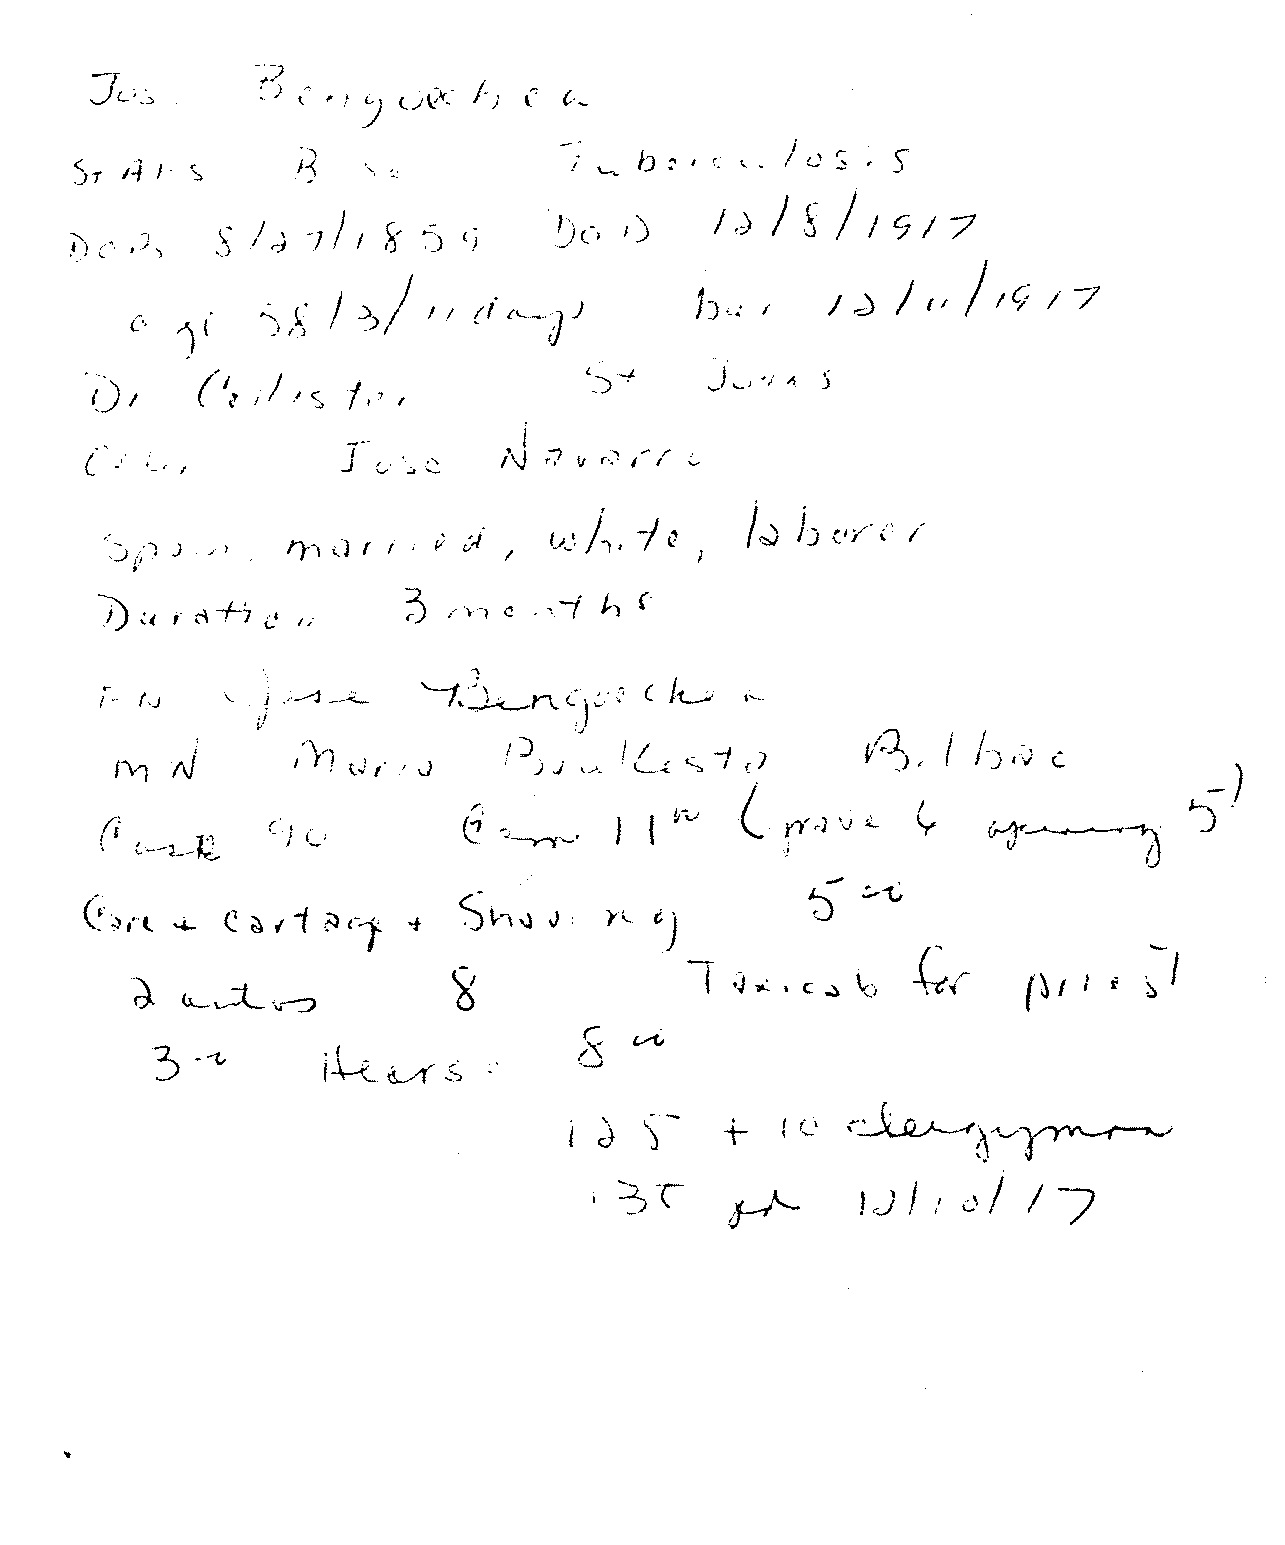 Jos. Benguechea
St Al's Boise Tuberculosis
DOB 8/27/1859 DoD 12/8/1917
age 58/3/11 days bur 12/11/1917
Dr Calister St Johns
Jose Navarro
Spain, married, white, laborer
Duration 3 months
FN Jose Benguechea
MN Maria Bilbao
Cask 90 Cem 11 00 (grave 6 opening 5)
Care + cartage + Shaving 5 00
2 autos 8 Taxicab for priest
3 00 Hearse 8 00
125 + 10 clergyman
135 pd 12/10/17